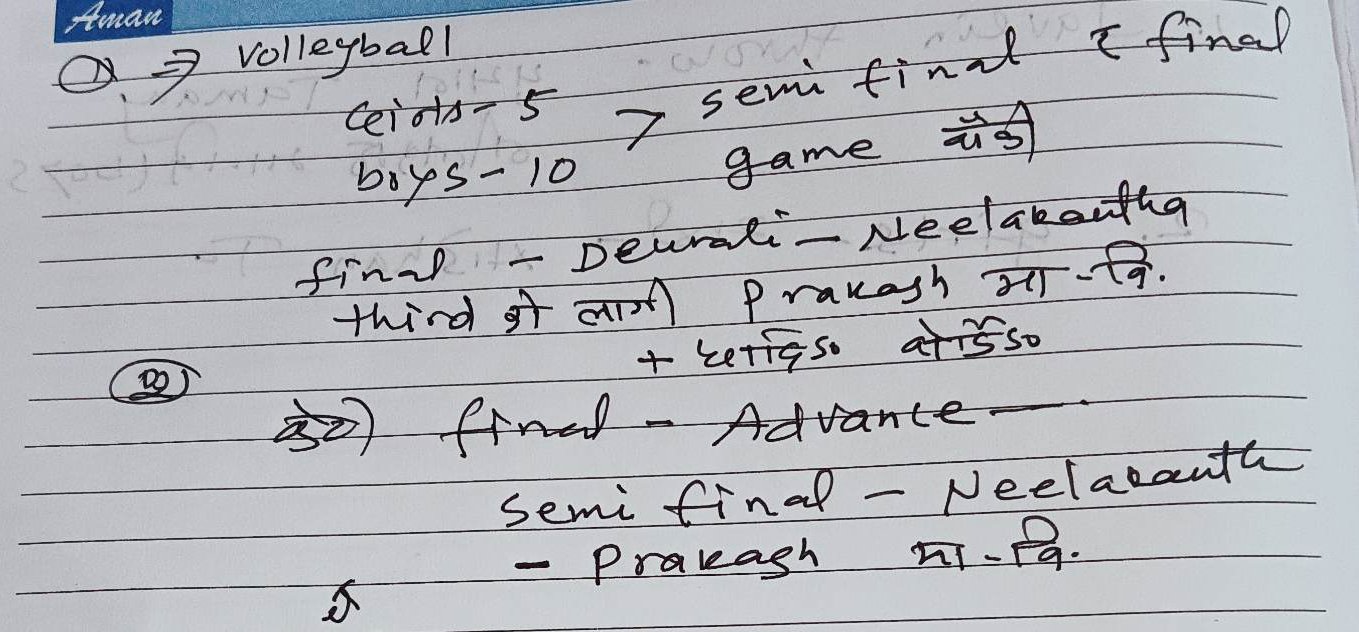 Aman
① ⇒ Volleyball
Girls - 5 > semi final र final
boys - 10 game बाँकी
final - Deurali - Neelakantha
third को लागी Prakash मा.वि.
+ बोर्डिङ
②
final - Advance —
semi final - Neelakanth
- Prakash मा.वि.